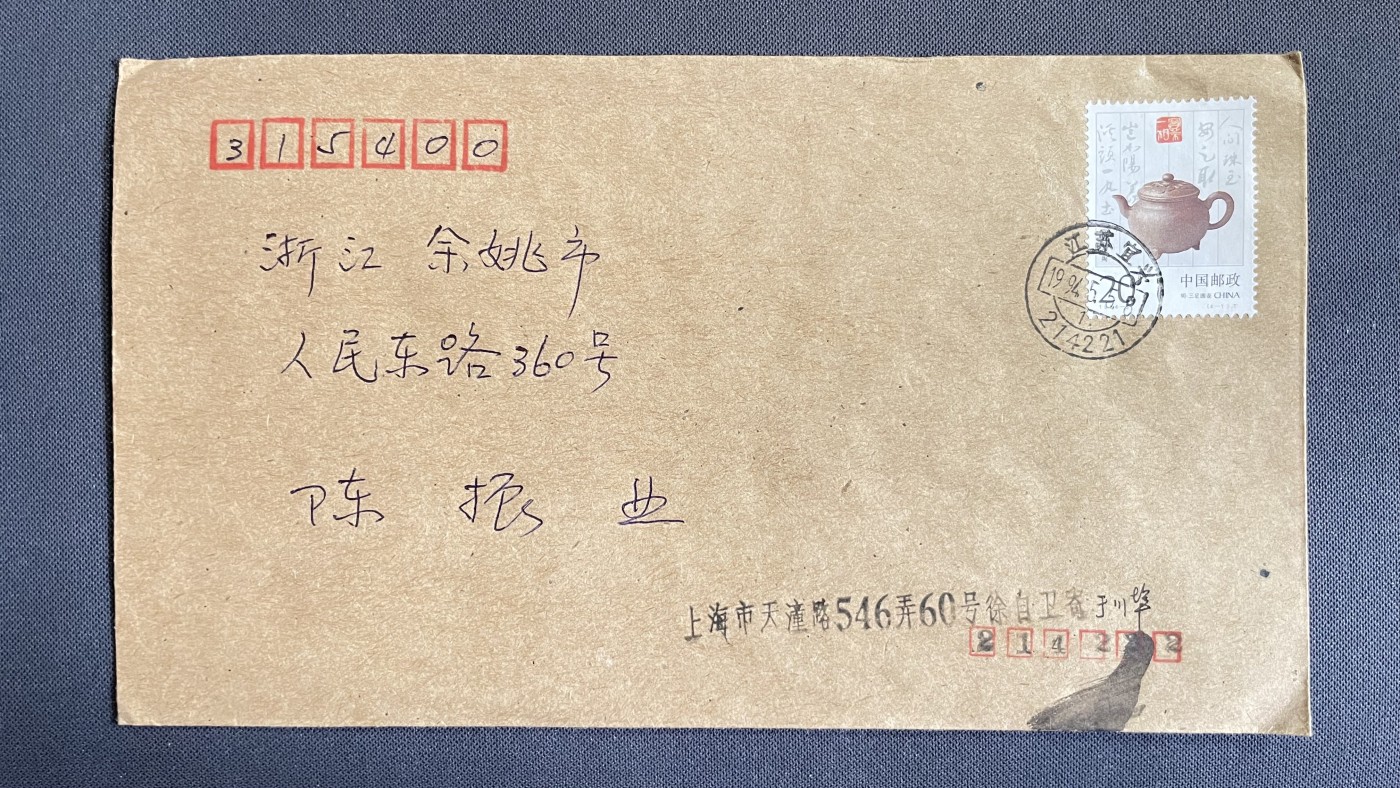 315400
浙江 余姚市
人民东路360号
陈 振 业
中国邮政
CHINA
20
江苏宜兴
1994.5.5
214221
上海市天潼路546弄60号徐自卫寄于川埠